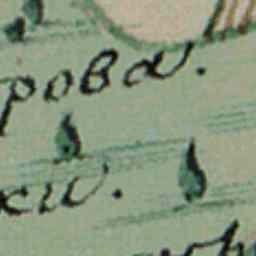 рова.
ки.